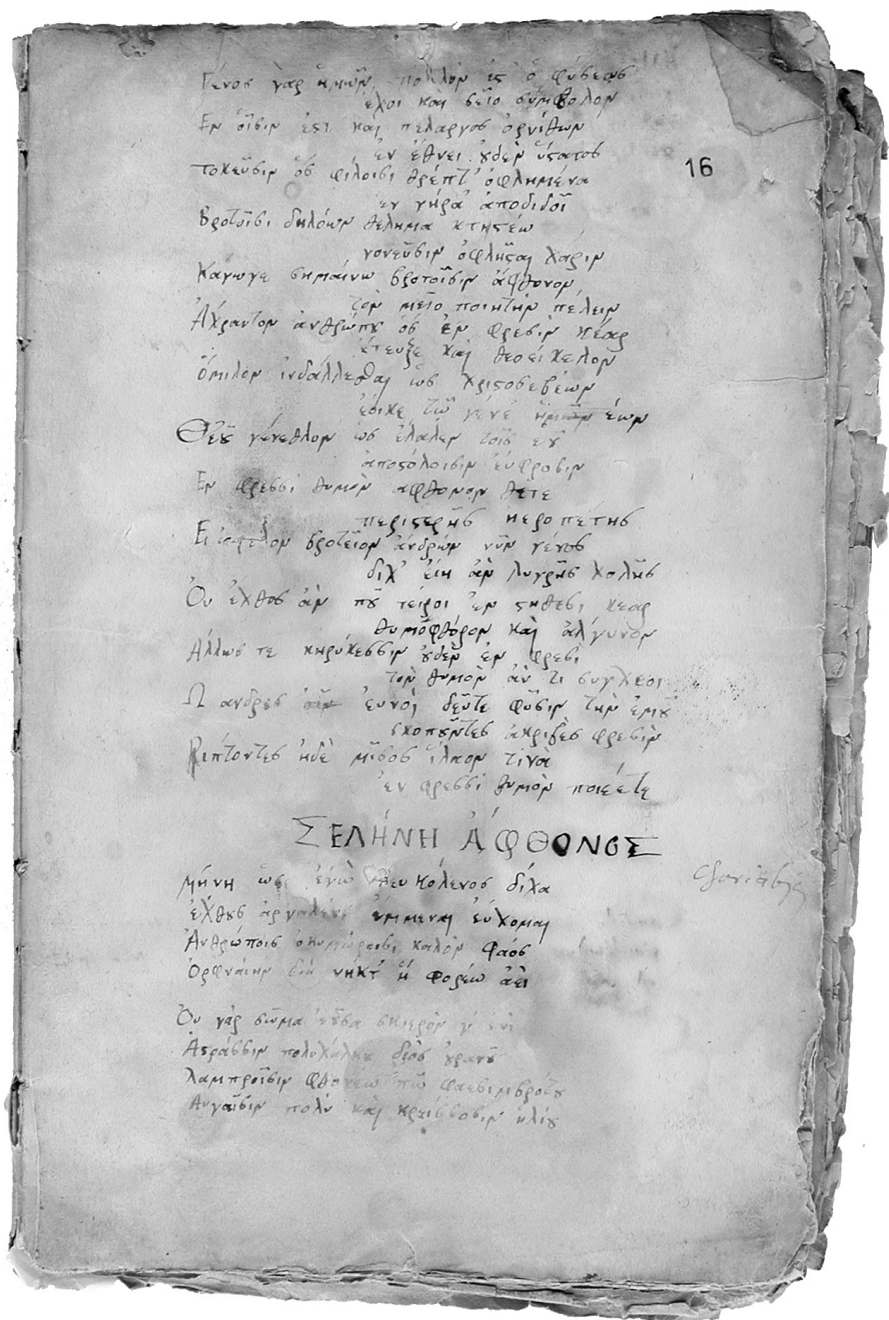 Γένος γὰρ ἡμῶν πολλὸν ἐς ὁ φύσεως
ἔχοι καὶ σεῖο σύμβολον
Ἐν οἷσιν ἐστι καὶ πελαργος ὀρνίθων
ἐν ἔθνει οὐδὲν ὕστατος
16
τοκεῦσιν ὃς φίλοισι θρέπτ' ὀφλημένα
ἐν γήρᾳ ἀποδιδοῖ
Βροτοῖσι δηλόων θέλημα κτησέω
γονεῦσιν ὀφλῆσαι χάριν
Κἄγωγε σημαίνω βροτοῖσιν ἄφθονον
τὸν μεῖο ποιητὴν πέλειν
Ἄχραντον ἀνθρώπου ὃς ἐν φρεσὶν κέαρ
ἔτευξε καὶ θεοείκελον
Ὅμιλον ἰνδάλλεσθαι ὡς χριστοσεβέων
ἔοικε τῷ γένει ἐών
Θεοῦ γένεθλον ὡς ἔλαλεν τοῖς εὖ
ἀποστόλοισιν εὔφροσιν
Ἐν φρεσσὶ θυμὸν ἄφθονον θέτε
περιστερῆς ἠεροπέτης
Εἰ βροτεῖον ἀνδρῶν νῦν γένος
δίχ' εἴη ἂν λυγρῆς χολῆς
Οὐ ἔχθος ἂν που τείροι ἐν στήθεσι κέαρ
θυμοφθόρον καὶ ἀλγύνον
Ἄλλως τε κηρύκεσσιν οὐδὲν ἐν φρεσὶ
τὸν θυμὸν ἄν τι συγχέοι
Ὦ ανδρες εὐνοι δεῦτε φῦσιν τὴν ἐμοῦ
σκοποῦντες ἀκριβὲς φρεσὶν
Ῥιπτοντες ἠδὲ μῖσος ἵλαον τίνα
ἐν φρεσσὶ θυμὸν ποιέετε
ΣΕΛΗΝΗ ἈΦΘΟΝΟΣ
Μήνη ὡς ἐγὼ λευκόλενος δίχα
ἔχθους ἀργαλέου ἔμμεναι εὔχομαι
Ἀνθρώποις καλὸν φάος
Ὀρφναίην διὰ νήκτ' ἣ φορέω ἀεὶ
Οὐ γὰρ σῶμα ἐοῦσα σκιερὸν γ' ἐνὶ
Ἀστράσσιν πολυχάλκου διὸς οὐρανοῦ
Λαμπροῖσιν φθονέω πω φαεσιμβρότου
Αὐγαῖσιν πολὺ καὶ κρείσσοσιν ἡλίου